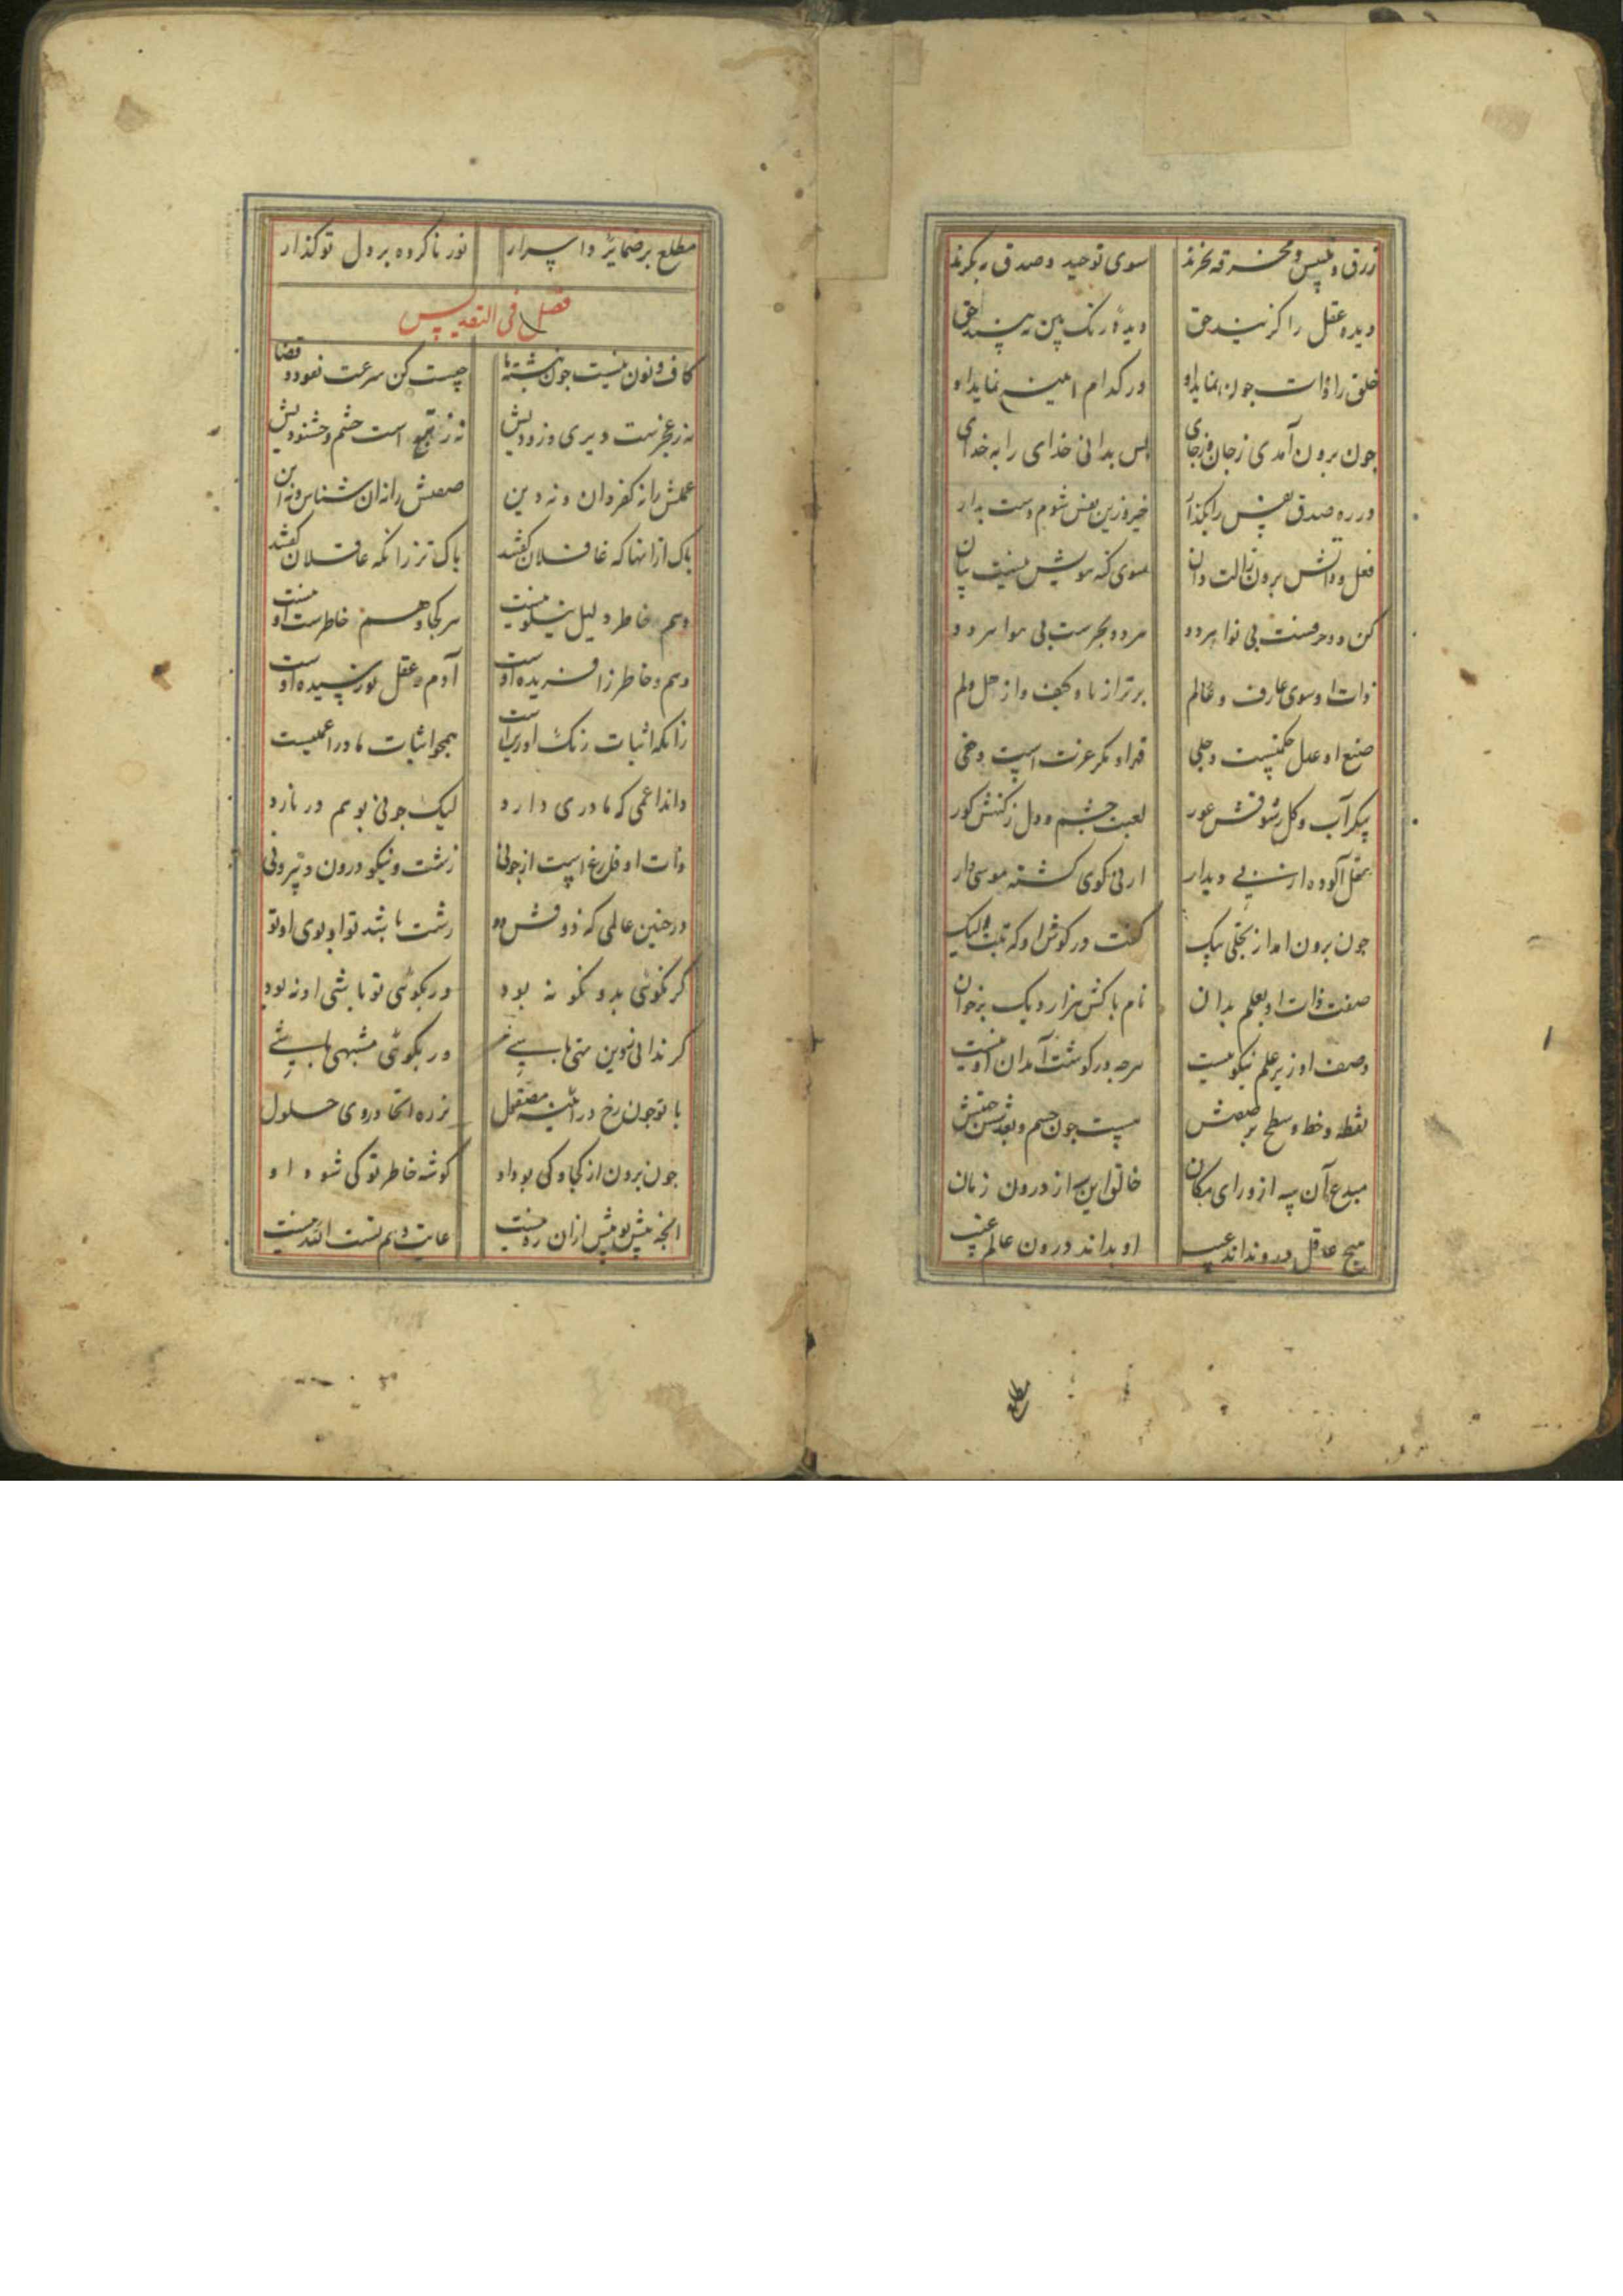 زرق و تلبیس و مخرقه نخرند سوی توحید و صدق به نکرند
دیده عقل را کزیند حق دیدهٔ رنک بین نه بیند حق
خلق را ذات جون نماید او در کدام اینه نماید او
جون برون آمدی ز جان و ز جای بس بدانی خدای را بخدای
در ره صدق نفس را بکذار خیز و زین نفس شوم دست بدار
فعل و ذاتش برون ز الت دان سوی کنه هویتش
کن دو حرفست بی نوا هر دو هر دو بحرست بی هوا هر دو
ذات او سوی عارف و عالم برتر از ما و کیف و از هل و لم
صنع او عدل حکمتست و جلی قهر او مکر عزتست و خفی
پیکر آب و کل ز شوقش عور لعبت جشم و دل ز کنهش کور
عقل آلوده از بی دیدار ارنی کوی کشته موسی وار
جون برون امد از تجلی پیک کفت در کوش او که تبت الیک
صفت ذات او بعلم بدان نام پاکش هزار و یک برخوان
وصف او زیر علم نیکو نیست هرجه در کوشت آمد ان او نیست
نقطه و خط و سطح بر صفتش هست جون جسم و بعد و شش جهتش
مبدع آن سه از ورای مکان خالق این سه از درون زمان
هیج عاقل درو نداند عیب او بداند درون عالم غیب
مطلع
مطلع بر ضمایر و اسرار نور ناکرده بر دل تو کذار
فصل فی التقدیس
کاف و نون نیست جون نبشته ما جیست کن سرعت نفوذ قضا
نه ز عجزست دیری و زودیش نه ز طبع است خشم و خشنودیش
علتش را نه کفر دان و نه دین صفتش را نه ان شناس و نه این
پاک از انها که غافلان کفتند پاک تر زانکه عاقلان کفتند
وهم و خاطر دلیل نیکو نیست هر کجا وهم خاطرست او نیست
وهم و خاطر ز افریده اوست آدم و عقل نورسیده اوست
زانکه اثبات همجو اثبات مادر اعمیست
داند اعمی که مادری دارد لیک جونی بوهم در نارد
ذات او فارغ است از جونی زشت و نیکو درون و بیرونی
در جنین عالمی که ذوقش دو زشت باشد تو او بوی او تو
کر نکوئی بدو نکو نه بود ور بکوئی تو باشی او نه بود
کر ندانی ز دین تهی باشی ور بکوئی مشبهی باشی
با تو جون رخ در آینه مصقول نز ره اتحاد و روی حلول
جون برون از کجا و کی بود او کوشه خاطر تو کی شود او
انجه پیش تو پیش ازان ره نیست غایت وهم تست الله نیست